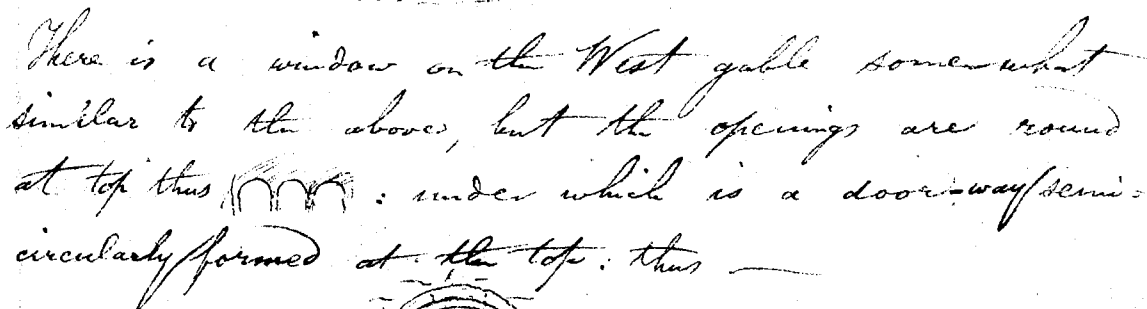 There is a window on the West gable somewhat
similar to the above, but the openings are round
at top thus : under which is a door-way (semi=
circularly formed at the top : thus —